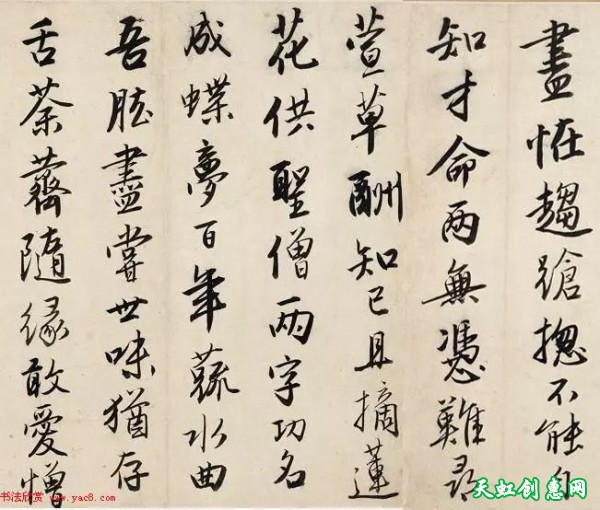 盡恠趨蹌揔不能自
知才命兩無憑難尋
萱草酬知己且摘蓮
花供聖僧兩字功名
成蝶夢百年蔬水曲
吾肱盡嘗世味猶存
舌荼薺隨緣敢愛憎
书法欣赏 www.yac8.com
天虹创惠网